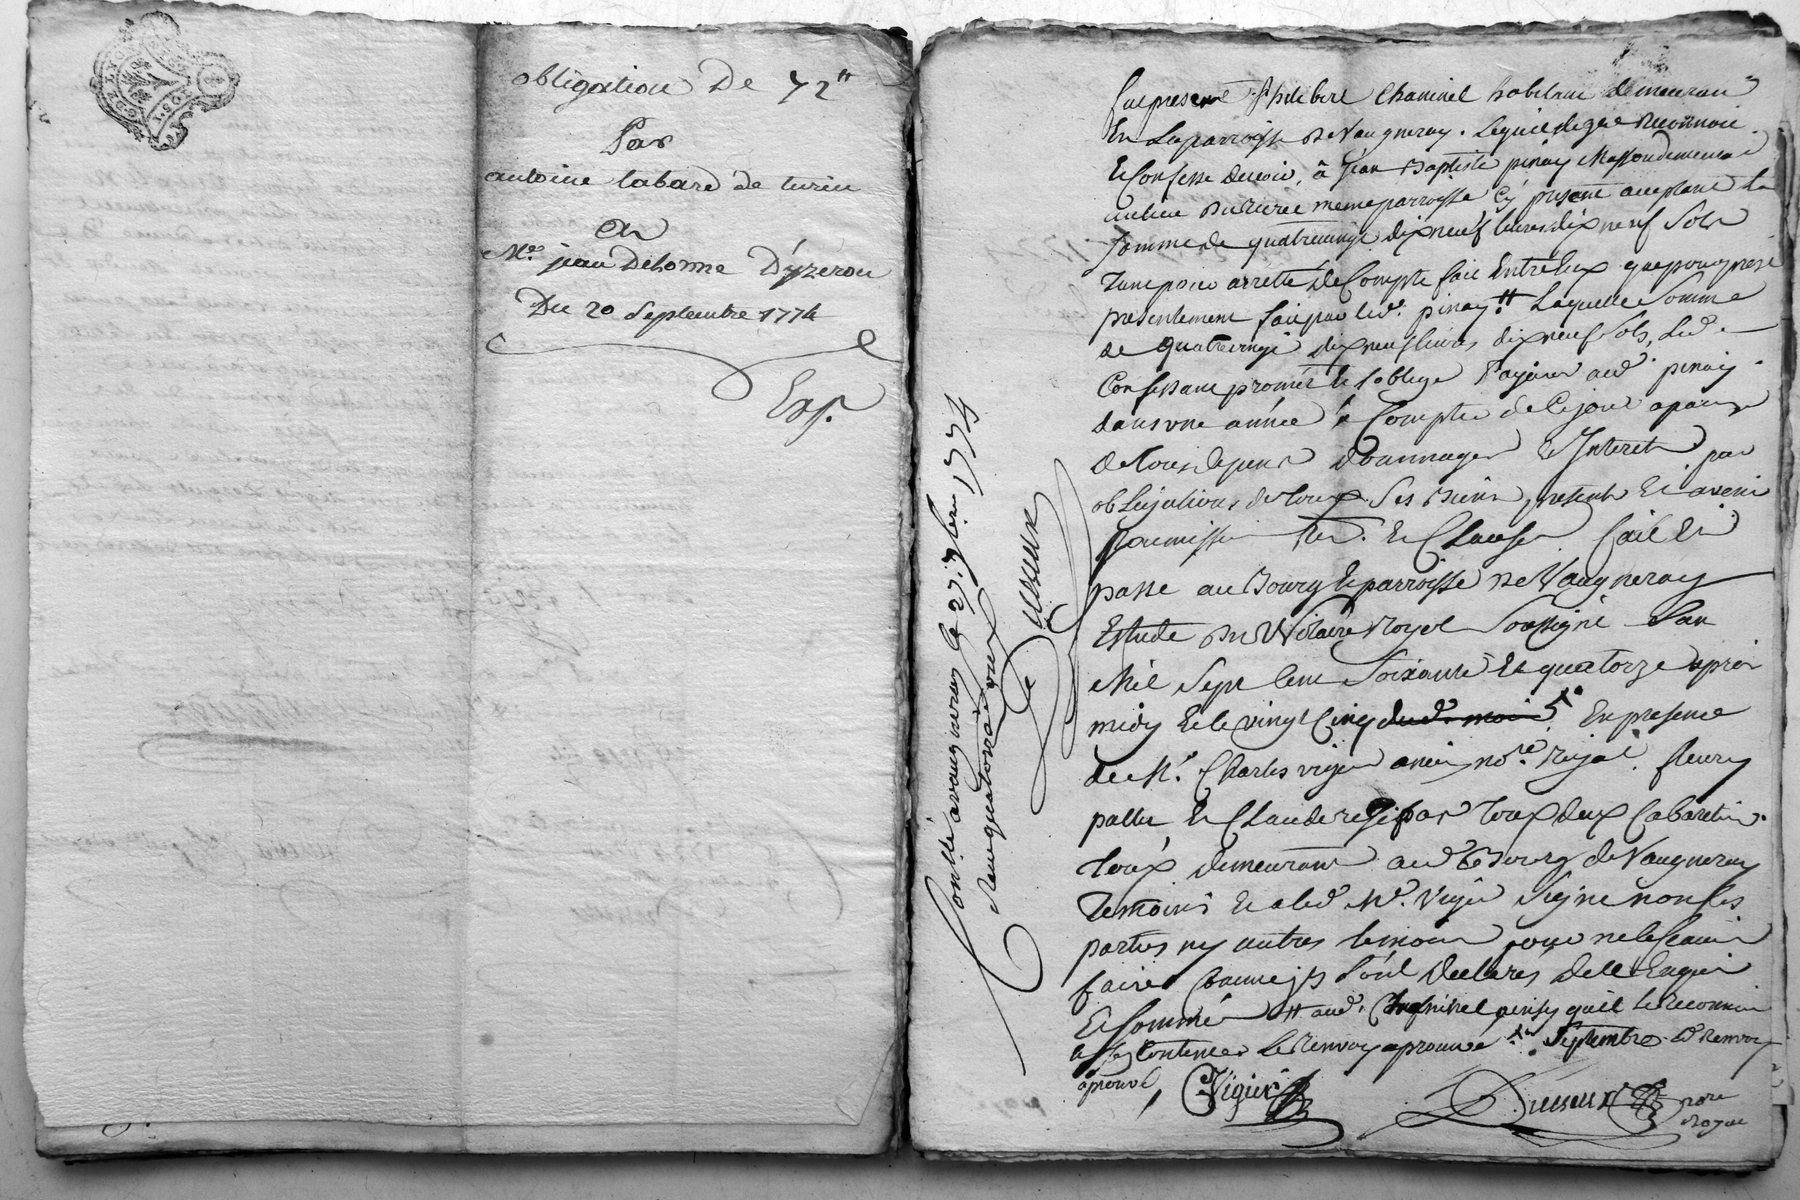 obligation De 72 ₶
Par
antoine labare de turin
a
Me. jean Delorme D'yzeron
Du 20 Septembre 1774
Exp.
fut present Philibert Chaninel habitant demeurant
En Laparroisse de Vaugneray. Lequel de gré Reconnoit
Et Confesse devoir, à jean Baptiste pinay Masson demeurant
au lieu meme parroisse Cy present acceptant la
somme de quatrevingt dix neuf livres dix neuf Sols
pour arrette de Compte fait Entr'Eux
presentement fait par led. pinay ₶ Laquelle Somme
de quatrevingt dix neuf livres dix neuf Sols, Led.
Confessant promet et s'oblige payer aud. pinay
dans une année à Compter de Ce jour apaine
de tous depens dommages Et Interets par
obligations de tous Ses Biens presents Et avenir
Soumissions Ren. Et Clauses fait Et
passé au Bourg Et parroisse de Vaugneray
Estude du Notaire Royal Soussigné Lan
Mil Sept Cent Soixante Et quatorze apres
midy Et le vingt Cinq dud. mois En presence
de Me. Charles vigier ancien nore. Royal. fleury
pallu Et Claude tous deux Cabaretiers
tous demeurant aud. Bourg de Vaugneray
temoins Et a led. Me. Vigier Signé non les
parties ny autres temoins pour ne le Scavoir
faire Comme ils s'ont Declares de ce Enquis
Et Sommés ₶ aud. Chaninel ainsy qu'il le Reconnoit
a Contenter Le Renvoy aprouvé Septembre Led. Renvoy
aprouvé
Vigier
Dusseux nore
Royal
Conllé a vaugneray le 27. 7bre 1774
Reçu quatorze sous
Dusseux